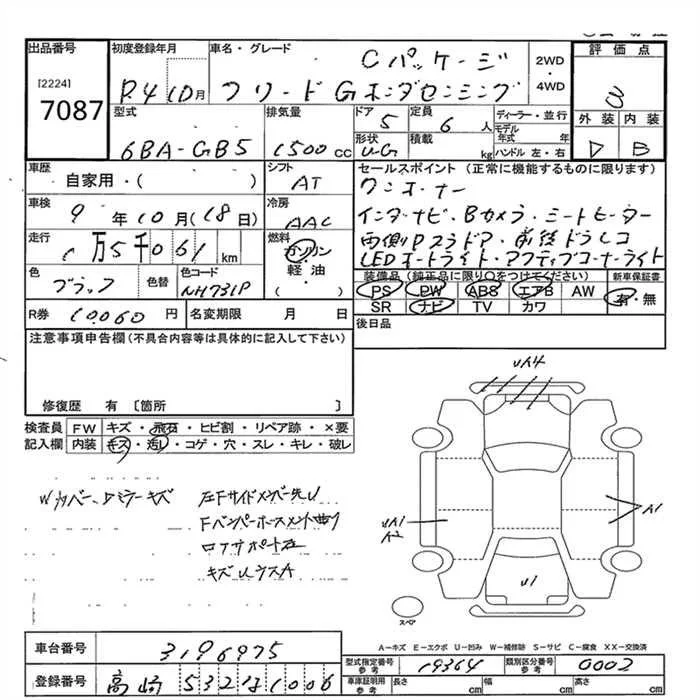 出品番号
[2224]
7087
初度登録年月
R.4 10月
車名・グレード
Cパッケージ
フリードGホンダセンシング
2WD
・
4WD
評価点
3
外装 内装
D B
型式
6BA-GB5
排気量
1500cc
ドア
5
定員
6人
形状
UG
積載
kg
ディーラー・並行
モデル年式 年
ハンドル 左・右
車歴
自家用・( )
シフト
AT
車検
9年10月(18日)
冷房
AAC
走行
1万5千061km
燃料
ガソリン
・
軽・油
( )
色
ブラック
色替
色コード
NH731P
R券 10060円
名変期限 月 日
セールスポイント(正常に機能するものに限ります)
ワンオーナー
インターナビ・Bカメラ・シートヒーター
両側Pスラドア・前後ドラレコ
LEDオートライト・アクティブコーナーライト
装備品(純正品に限り○をつけてください)
新車保証書
PS PW ABS エアB AW
SR ナビ TV カワ
有・無
後日品
注意事項申告欄(不具合内容等は具体的に記入して下さい)
修復歴 有〔箇所 〕
検査員記入欄
FW キズ・飛石・ヒビ割・リペア跡・×要
内装 キズ・汚レ・コゲ・穴・スレ・キレ・破レ
Wカバー、Dミラーキズ
左Fサイドメンバー先U
Fバンパーホースメント曲り
ロアサポート左
キズUウスA
UA4
UA1
A2
A1
U1
スペア
A-キズ E-エクボ U-凹み W-補修跡 S-サビ C-腐食 XX-交換済
車台番号 3196975
登録番号 高崎 532は1006
型式指定番号 参考 19364
類別区分番号 参考 0002
車庫証明用 参考 長さ cm 幅 cm 高さ cm